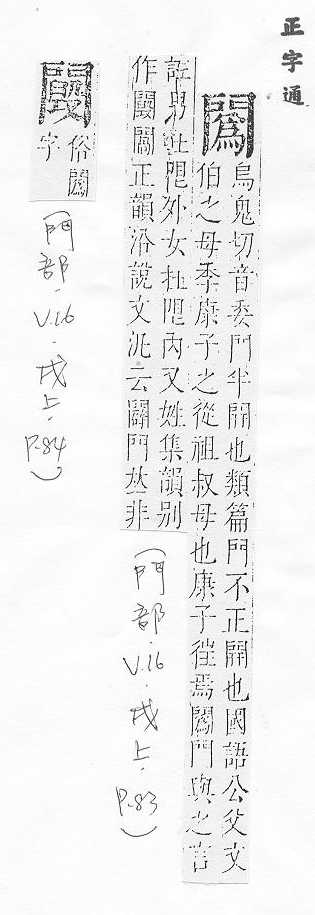 正字通
闖烏鬼切音委門半開也類篇門不正開也國語公父文
伯之母季康子之從祖叔母也康子徃焉闖門與之言
註男在閫外女在閫内又姓集韻别
作闅闖正韻沿說文汎云闢門𠀤非
(門部.V.16.戌上.P.83)
俗闖
字
(門部.V.16.戌上.P.84)